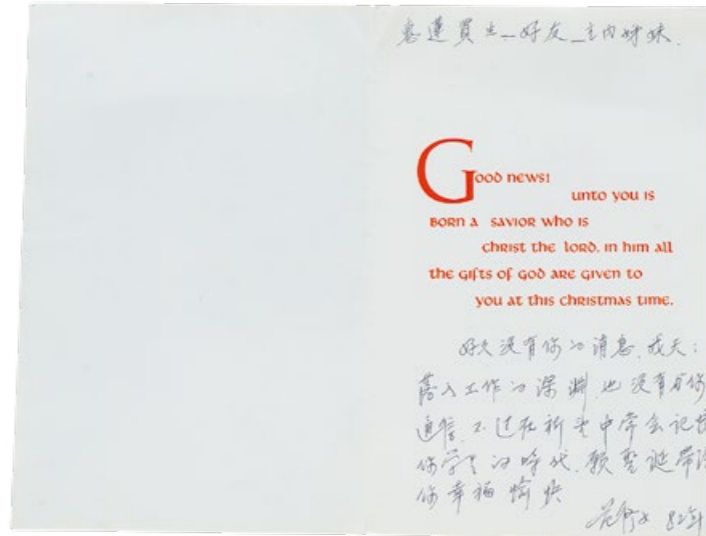 惠蓮賢士—好友—主内姊妹.
Good news!
unto you is
born a savior who is
christ the lord. in him all
the gifts of god are given to
you at this christmas time.
好久沒有你的消息, 我天
落入工作的深淵, 也沒有和你
通信, 不过在祈求中常会记
你 的時代, 願聖誕帶
你幸福愉快
82年